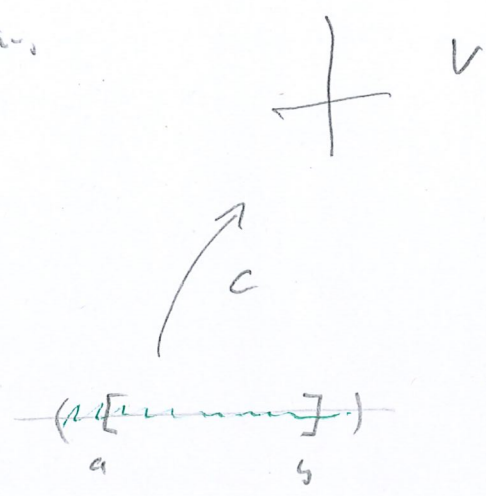 V
c
( [ ] )
a b